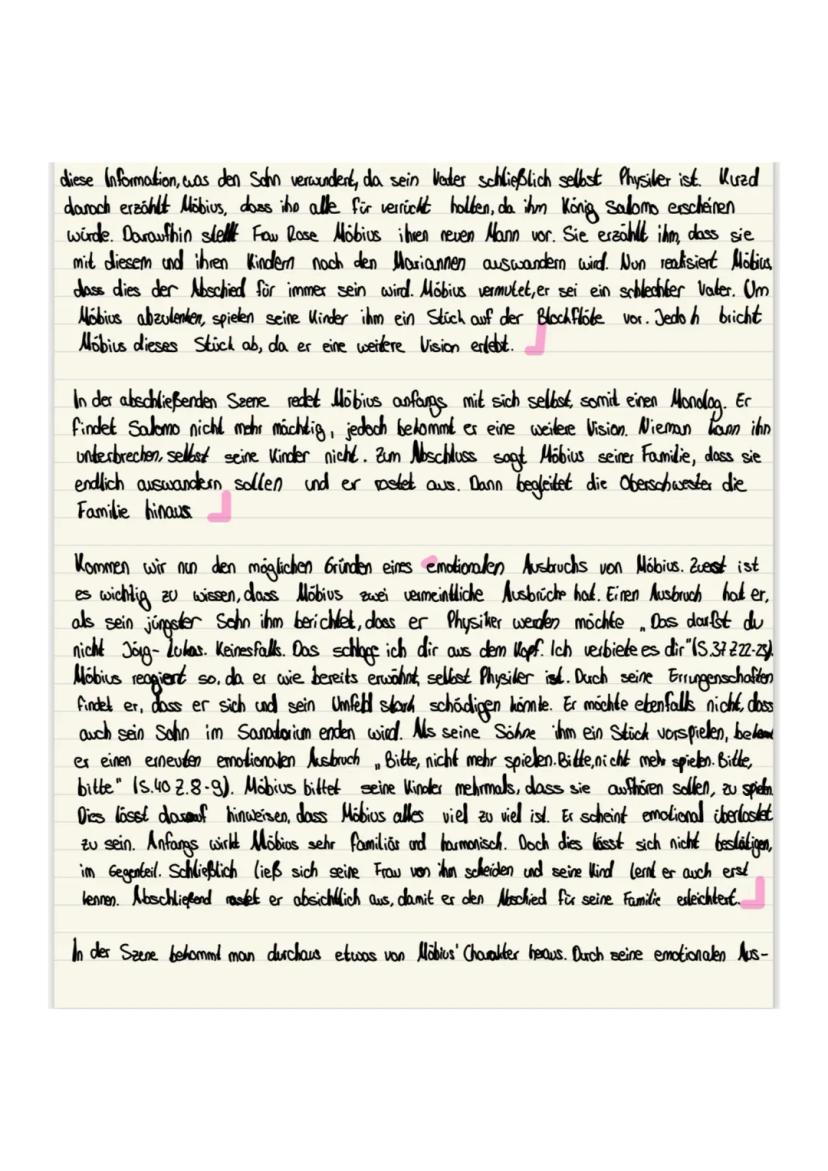 diese Information, was den Sohn verwundert, da sein Vater schließlich selbst Physiker ist. Kurzd
darach erzählt Möbius, dass ihn alle für verrückt halten, da ihm König Salomo erscheinen
würde. Daraufhin stellt Frau Rose Möbius ihren neuen Mann vor. Sie erzählt ihm, dass sie
mit diesem und ihren Kindern nach den Mariannen auswandern wird. Nun realisiert Möbius,
dass dies der Abschied für immer sein wird. Möbius vermutet, er sei ein schlechter Vater. Um
Möbius abzulenken, spielen seine Kinder ihm ein Stück auf der Blockflöte vor. Jedo h bricht
Möbius dieses Stück ab, da er eine weitere Vision erlebt.
In der abschließenden Szene redet Möbius anfangs mit sich selbst, somit einen Monolog. Er
findet Salomo nicht mehr mächtig, jedoch bekommt er eine weitere Vision. Nieman kann ihn
unterbrechen, selbst seine Kinder nicht. Zum Abschluss sagt Möbius seiner Familie, dass sie
endlich auswandern sollen und er rastet aus. Dann begleitet die Oberschwester die
Familie hinaus.
Kommen wir nun den möglichen Gründen eines emotionalen Ausbruchs von Möbius. Zuerst ist
es wichtig zu wissen, dass Möbius zwei vermeintliche Ausbrüche hat. Einen Ausbruch hat er,
als sein jüngster Sohn ihm berichtet, dass er Physiker werden möchte „Das darfst du
nicht Jörg-Lukas. Keinesfalls. Das schlage ich dir aus dem Kopf. Ich verbiete es dir" (S.37 Z.22-25).
Möbius reagiert so, da er wie bereits erwähnt, selbst Physiker ist. Durch seine Errungenschaften
findet er, dass er sich und sein Umfeld stark schädigen könnte. Er möchte ebenfalls nicht, dass
auch sein Sohn im Sanatorium enden wird. Als seine Söhne ihm ein Stück vorspielen, bekommt
er einen erneuten emotionalen Ausbruch „Bitte, nicht mehr spielen. Bitte, nicht mehr spielen. Bitte,
bitte" (S.40 Z.8-9). Möbius bittet seine Kinder mehrmals, dass sie aufhören sollen, zu spielen.
Dies lässt darauf hinweisen, dass Möbius alles viel zu viel ist. Er scheint emotional überlastet
zu sein. Anfangs wirkt Möbius sehr familiär und harmonisch. Doch dies lässt sich nicht bestätigen,
im Gegenteil. Schließlich ließ sich seine Frau von ihm scheiden und seine Kind lernt er auch erst
kennen. Abschließend rastet er absichtlich aus, damit er den Abschied für seine Familie erleichtert.
In der Szene bekommt man durchaus etwas von Möbius' Charakter heraus. Durch seine emotionalen Aus-